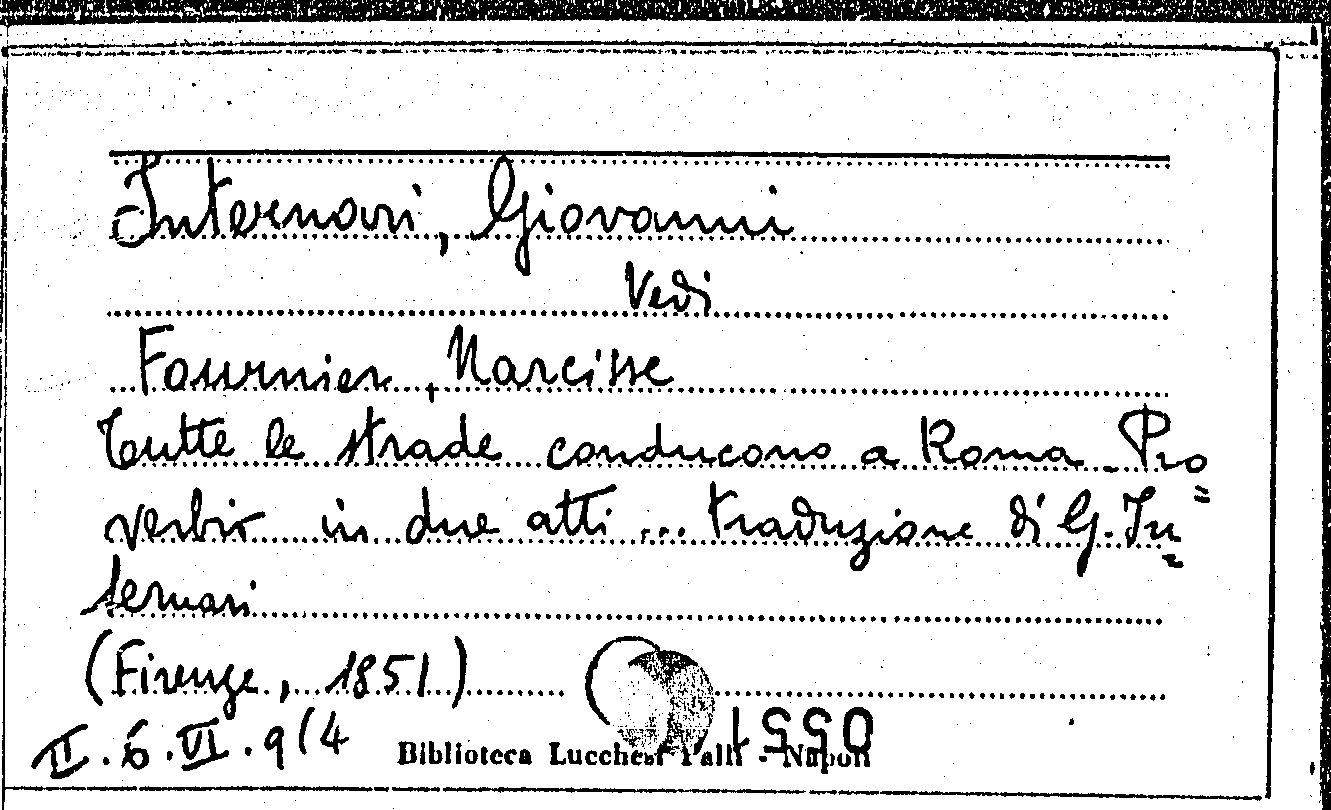 Internari, Giovanni
Vedi
Fournier, Narcisse
Tutte le strade conducono a Roma. Pro=
verbio in due atti ... traduzione di G. In=
ternari
(Firenze, 1851)
II.6.VI.9(4
Biblioteca Lucchesi Palli - Napoli